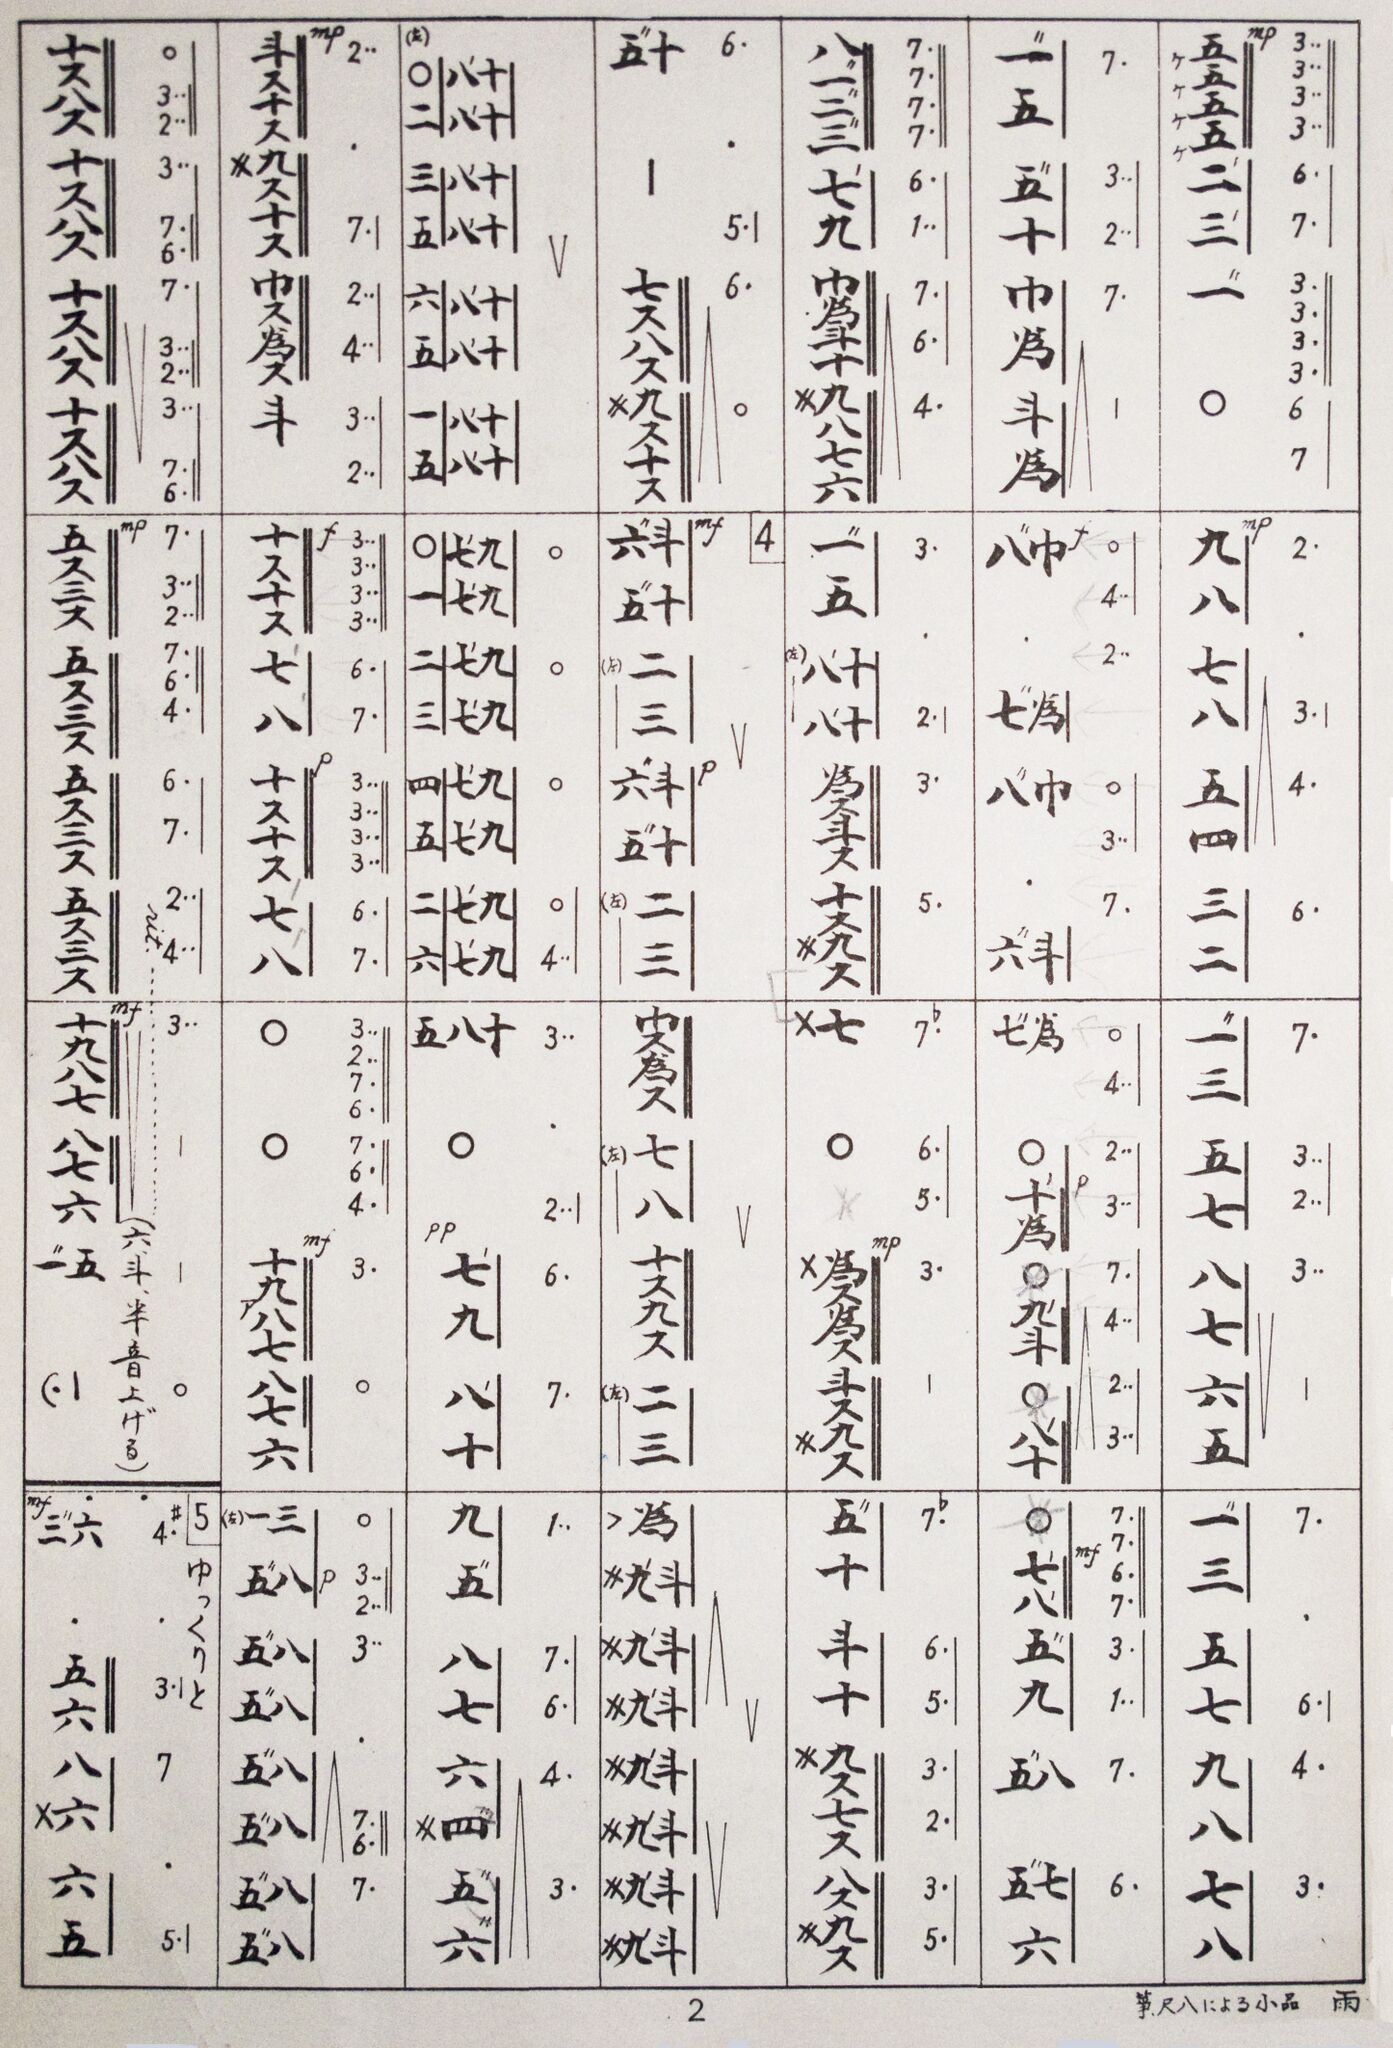 mp
3‥ 3‥ 3‥ 3‥ 6· 7· 3· 3· 3· 3· 6 7
五五五五二三一○
ケケケケ
mp
2· · 3· 4· 6·
九八七八五四三二
7· 3‥ 2‥ 3‥ 1
一三五七八七六五
7· · 6· 4· 3·
一三五七九八七八
7· 3‥ 2‥ 7· 1
一五五十巾為斗為
f
○ 4‥ 2‥ ○ 3‥ 7·
八巾 · 七為 八巾 · 六斗
○ 4‥ 2‥ 3‥ 7· 4‥ 2‥ 3‥
七為○十為○九斗○八十
p
7· 7· 6· 7· 3· 1‥ 7· 6·
○七八五九五八五七六
mf
7· 7· 7· 7· 6· 1‥ 7· 6· 4·
八一二三七九巾為斗十九八七六
3· · 2· 3· 5·
一五(左)八十八十為ス斗ス十ス九ス
7♭· 6· 5· 3· 1
七○為ス為ス斗ス九ス
mp
7♭· 6· 5· 3· 2· 3· 5·
五十斗十九ス七ス八ス九ス
6· · 5· 6· ○
五十 | 七ス八ス九ス十ス
4
mf
六斗五十(左)二三六斗五十(左)二三
p
巾ス為ス(左)七八十ス九ス(左)二三
>為九斗九斗九斗九斗九斗九斗九斗
(左)
○八十 二八十 三八十 五八十 六八十 五八十 一八十 五八十
○ ○ ○ ○ 4‥
○七九 一七九 二七九 三七九 四七九 五七九 二七九 六七九
3‥ · 2‥ 6· 7·
五八十○七九八十
pp
1‥ 7· 6· 4· 3·
九五八七六四五六
mp
2‥ · 7· 2‥ 4‥ 3‥ 2‥
斗ス十ス九ス十ス巾ス為ス斗
f
3‥ 3‥ 3‥ 3‥ 6· 7· 3‥ 3‥ 3‥ 3‥ 6· 7·
十ス十ス七八十ス十ス七八
p
3‥ 2‥ 7· 6· 7· 6· 4· 3· ○
○○十九八七八七六
mf
○ 3‥ 2‥ 3‥ · 7· 6· 7·
(左)一三五八五八五八五八五八五八五八
p
○ 3‥ 2‥ 3‥ 7· 6· 7· 3‥ 2‥ 3‥ 7· 6·
十ス八ス十ス八ス十ス八ス十ス八ス
mp
7· 3‥ 2‥ 7· 6· 4· 6· 7· 2‥ 4‥
五ス三ス五ス三ス五ス三ス五ス三ス
rit.
3‥ | | ○
mf
十九八七八七六一五
(六、斗、半音上げる)
5
ゆっくりと
mf
4♯· · 3· 7 · 5·
三六 · 五六八六六五
2
箏、尺八による小品 雨